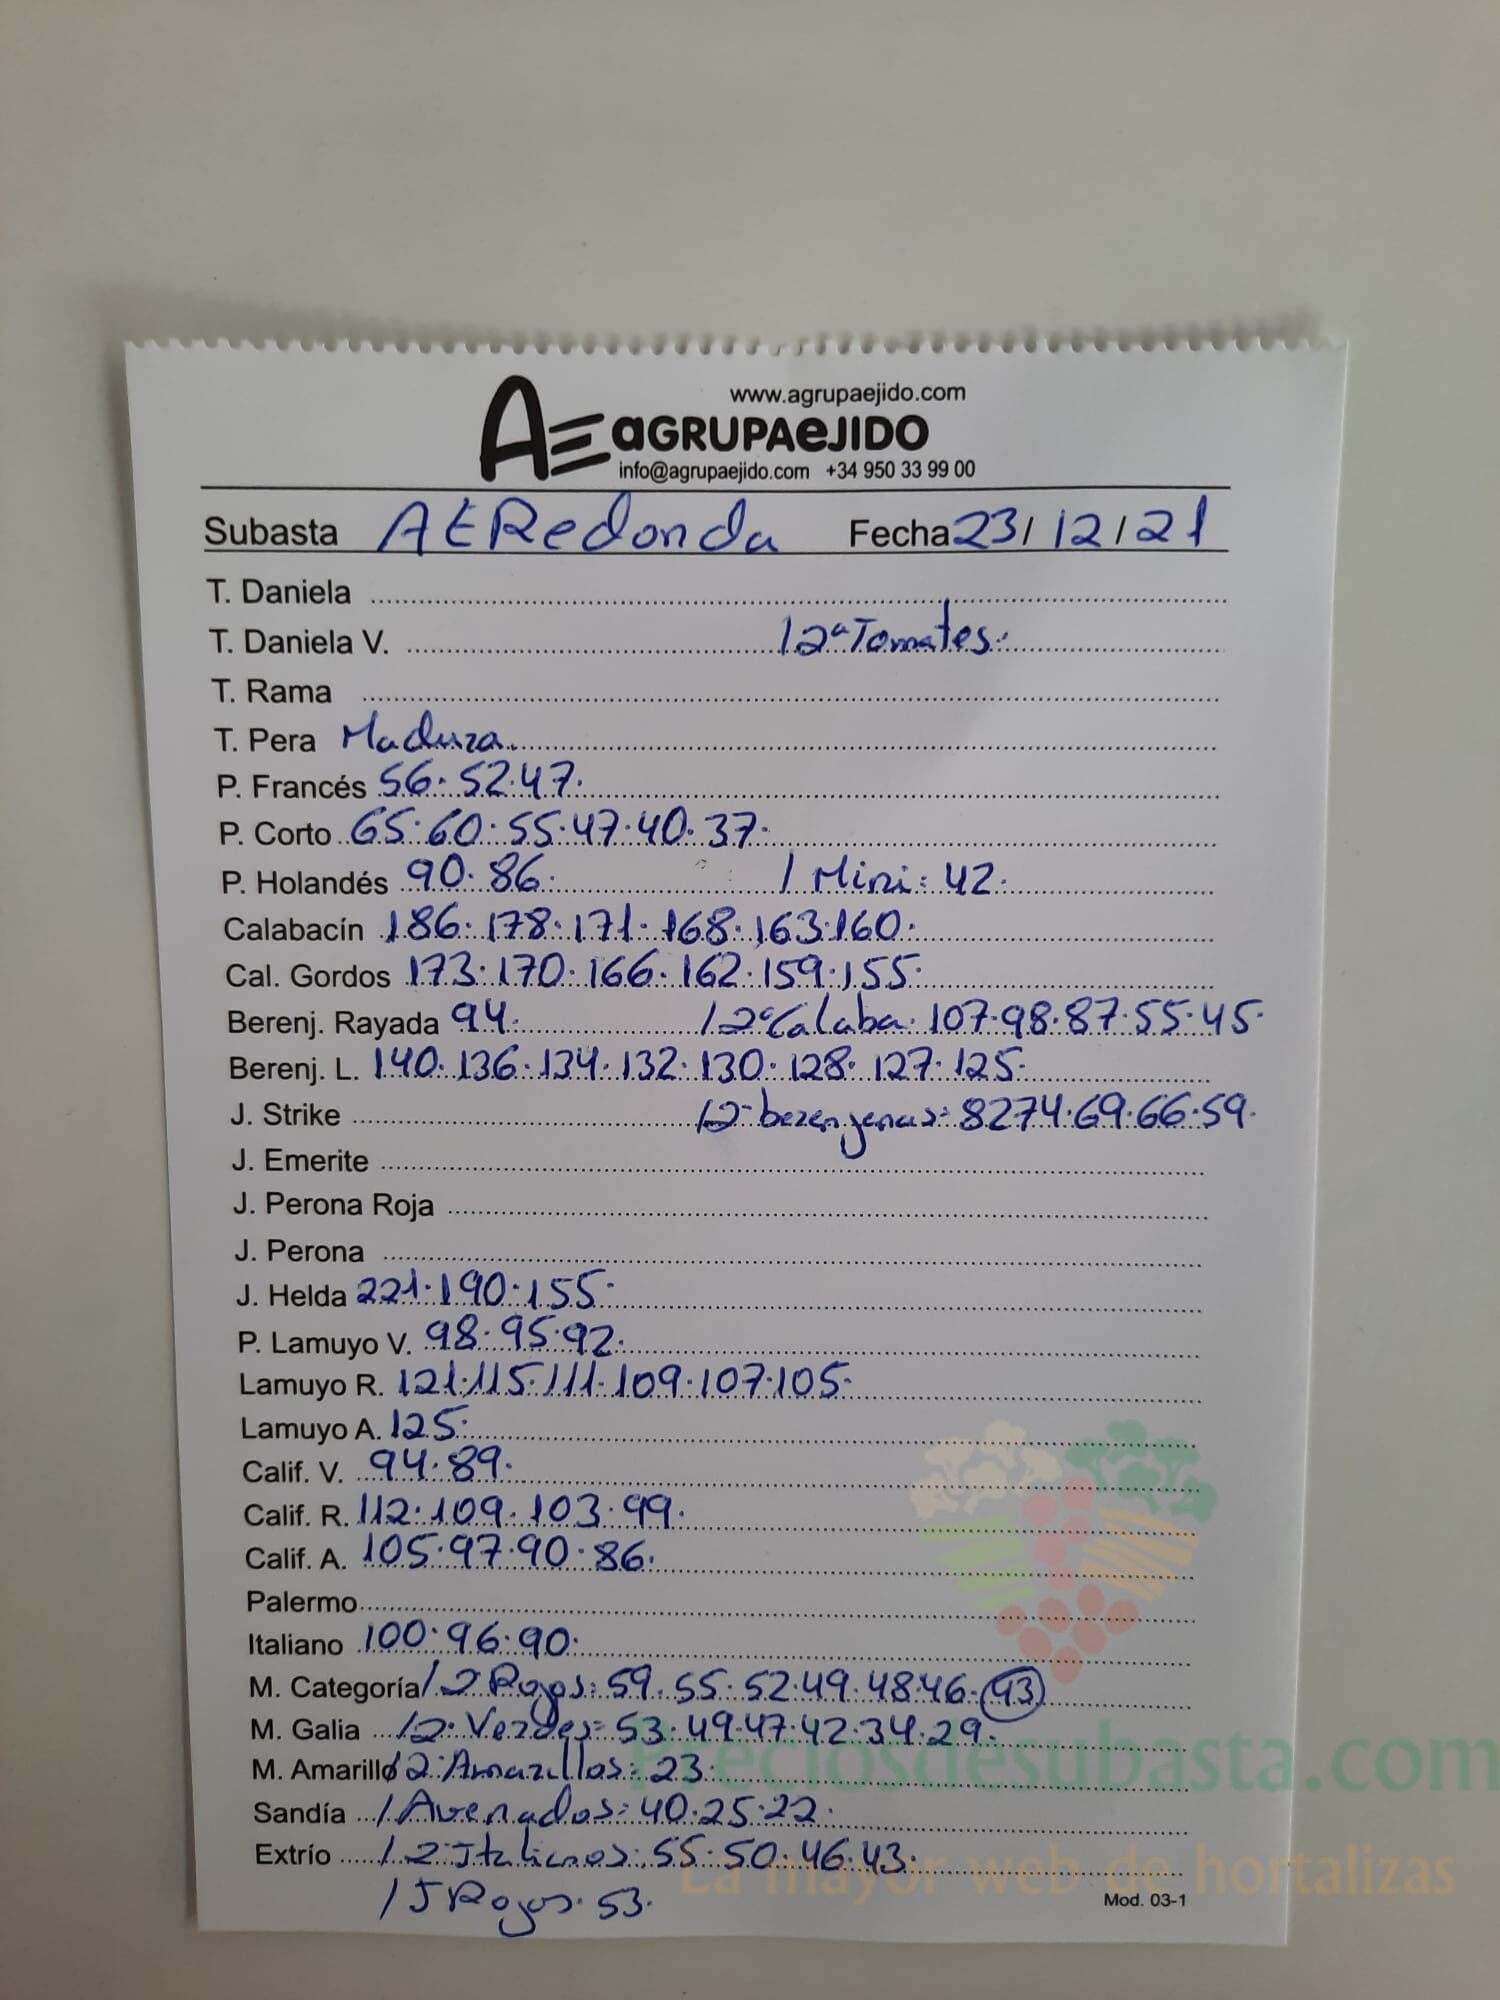 www.agrupaejido.com
AE aGRUPAeJIDO
info@agrupaejido.com +34 950 33 99 00
Subasta AE Redonda Fecha 23/12/21
T. Daniela
T. Daniela V. / 2ª Tomates:
T. Rama
T. Pera Madura.
P. Francés 56. 52. 47.
P. Corto 65. 60. 55. 47. 40. 37.
P. Holandés 90. 86. / Mini: 42.
Calabacín 186. 178. 171. 168. 163. 160.
Cal. Gordos 173. 170. 166. 162. 159. 155.
Berenj. Rayada 94. / 2ª Calaba. 107. 98. 87. 55. 45.
Berenj. L. 140. 136. 134. 132. 130. 128. 127. 125.
J. Strike / 2ª berenjenas: 82 74. 69. 66. 59.
J. Emerite
J. Perona Roja
J. Perona
J. Helda 221. 190. 155.
P. Lamuyo V. 98. 95. 92.
Lamuyo R. 121. 115. 111. 109. 107. 105.
Lamuyo A. 125.
Calif. V. 94. 89.
Calif. R. 112. 109. 103. 99.
Calif. A. 105. 97. 90. 86.
Palermo
Italiano 100. 96. 90.
M. Categoría / 2 Rojos: 59. 55. 52. 49. 48. 46. 43
M. Galia / 2. Verdes: 53. 49. 47. 42. 34. 29.
M. Amarillo / 2. Amarillos: 23.
Sandía / Asurados: 40. 25. 22.
Extrío / 2 Italianos: 55. 50. 46. 43.
/ J Rojos. 53.
Mod. 03-1
Preciosdesubasta.com
La mayor web de hortalizas